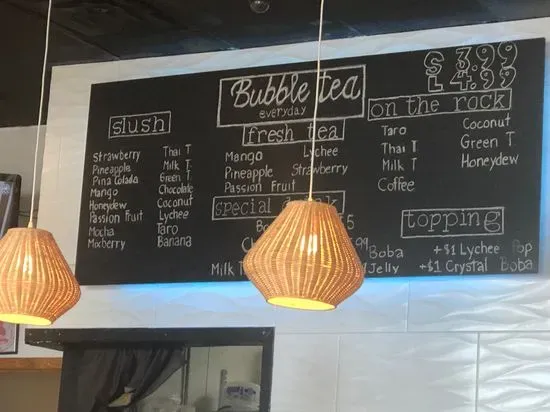 S 3.99
L 4.99
Bubble tea
everyday
slush
Strawberry
Pineapple
Pina Colada
Mango
Honeydew
Passion Fruit
Mocha
Mixberry
Thai T
Milk T
Green T
Chocolate
Coconut
Lychee
Taro
Banana
fresh tea
Mango Lychee
Pineapple Strawberry
Passion Fruit
on the rock
Taro
Thai T
Milk T
Coffee
Coconut
Green T
Honeydew
special
Milk
topping
Boba +$1 Lychee
Jelly +$1 Crystal Boba